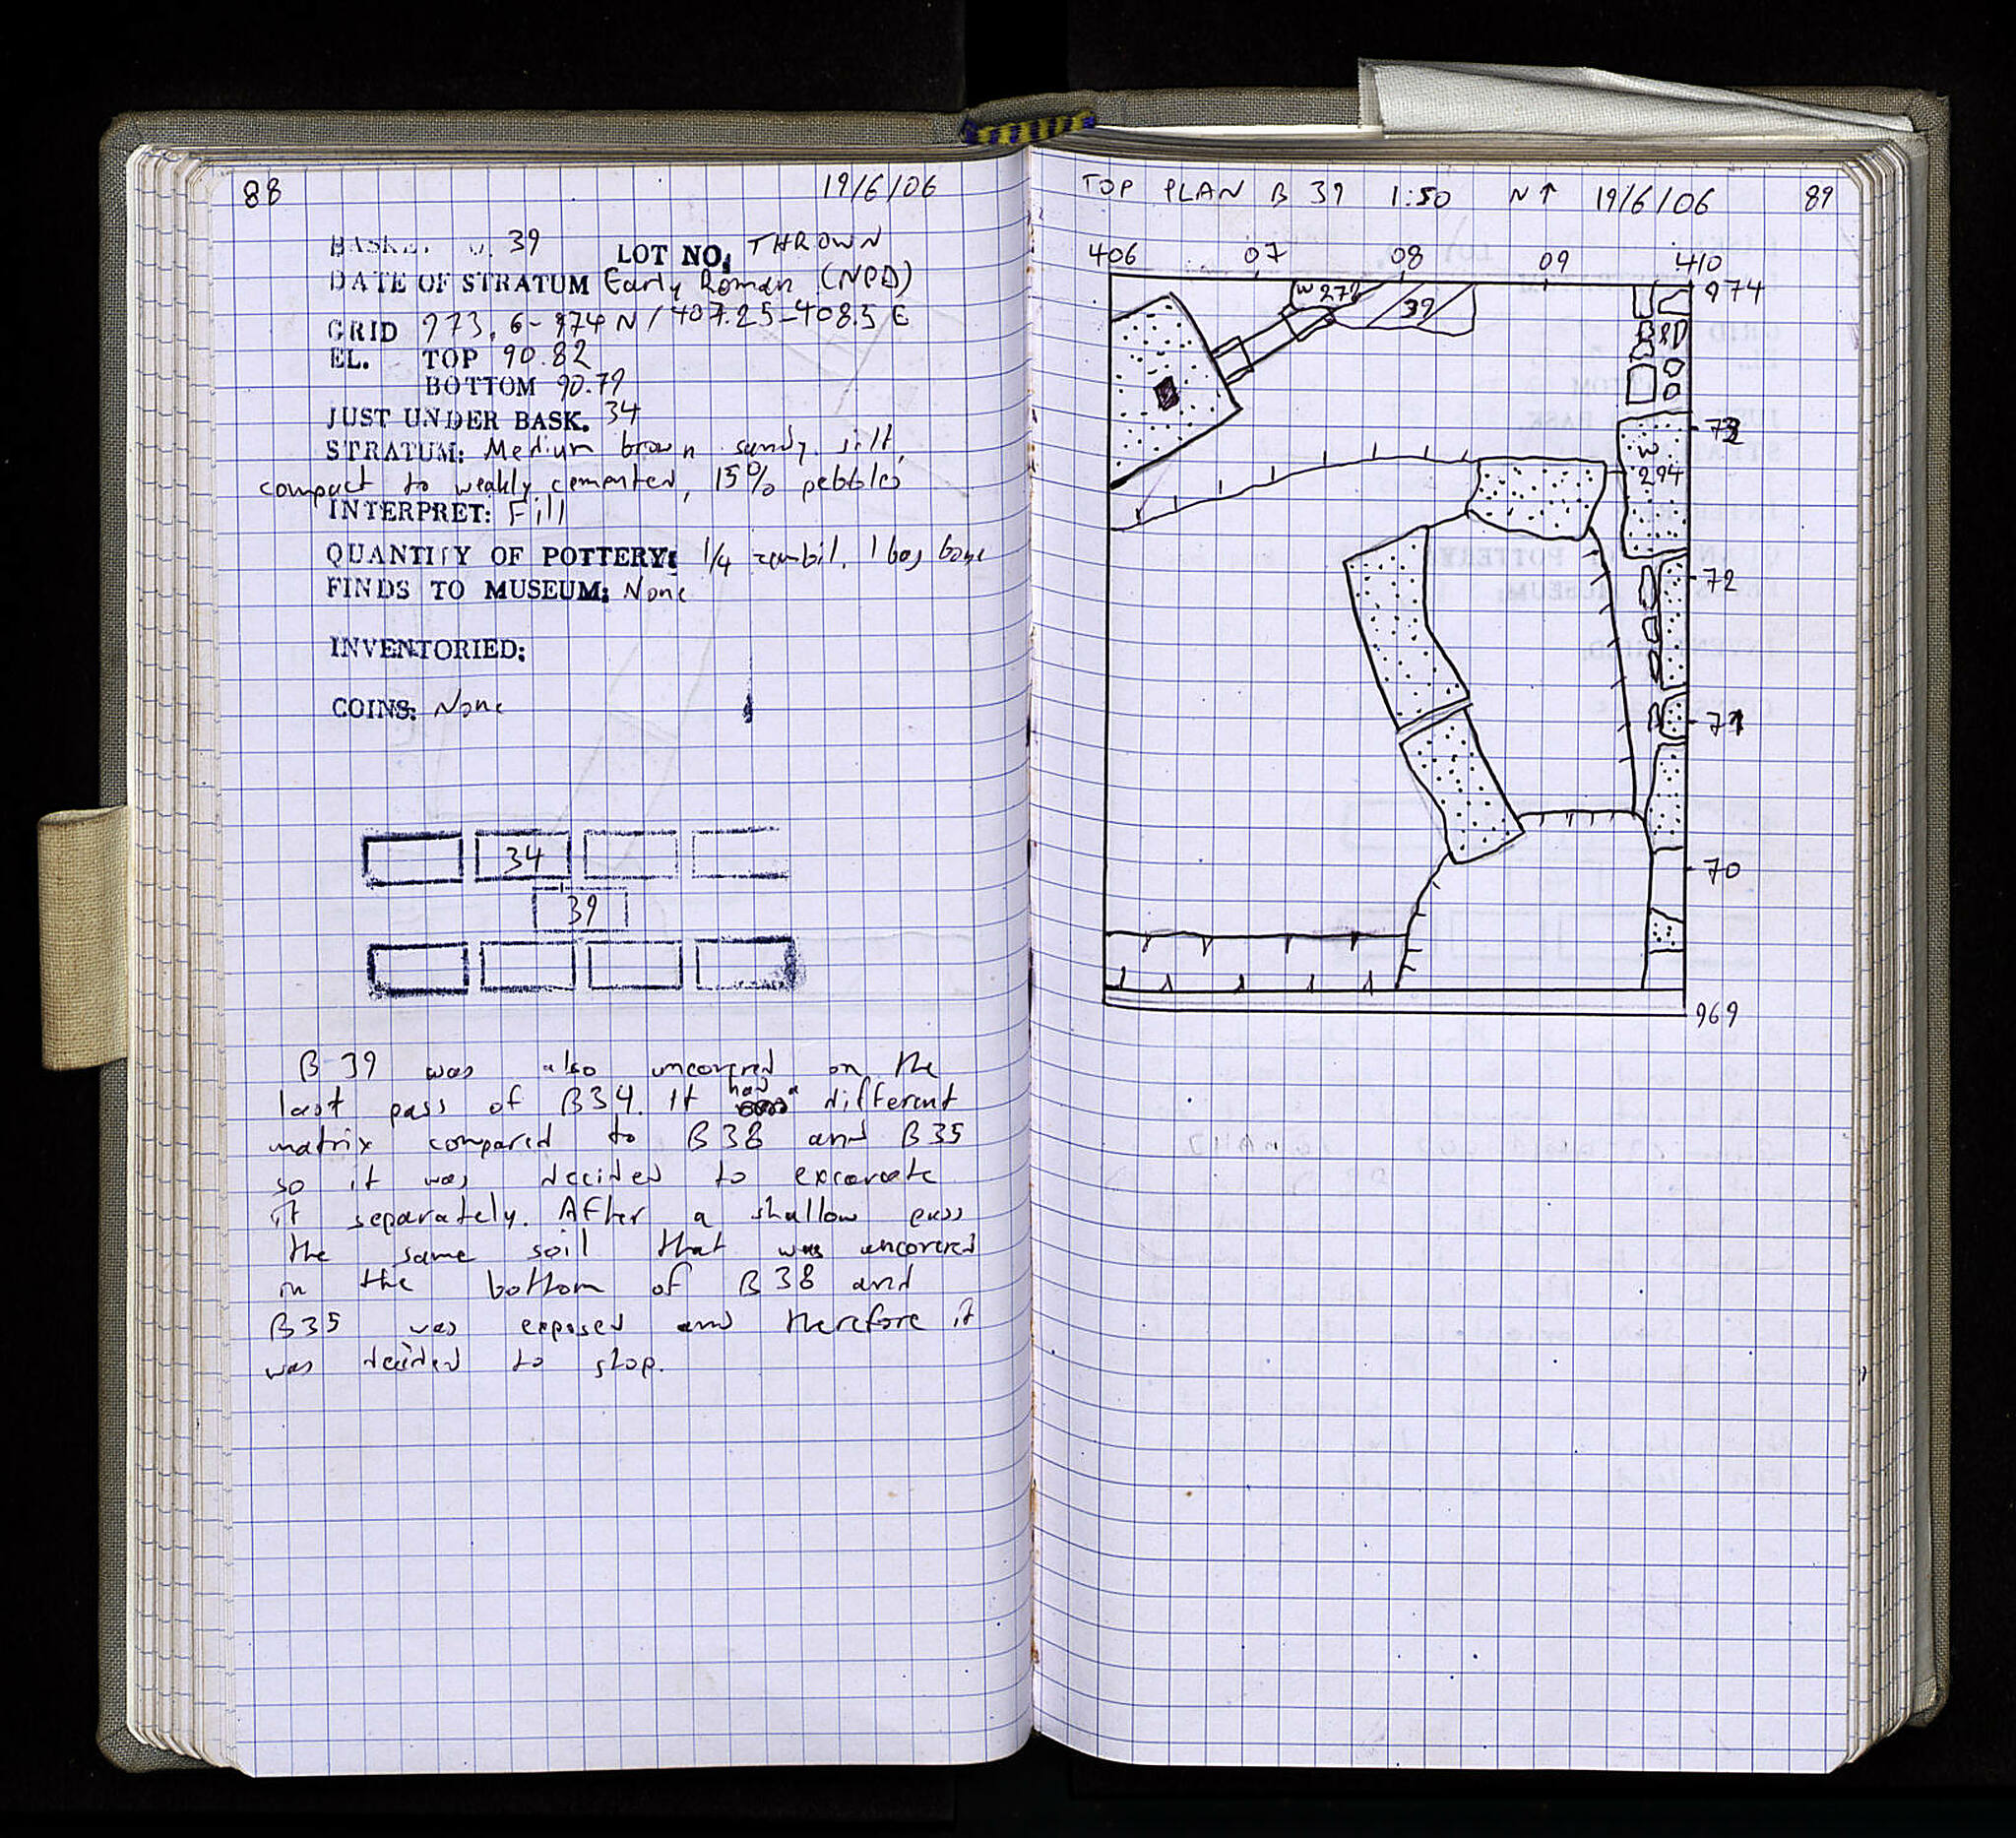 88 19/6/06
BASKE. O. 39 LOT NO. THROWN
DATE OF STRATUM Early Roman (NPD)
GRID 973.6-974 N / 407.25-408.5 E
EL. TOP 90.82
BOTTOM 90.79
JUST UNDER BASK. 34
STRATUM: Medium brown sandy silt,
compact to weakly cemented, 15% pebbles
INTERPRET: Fill
QUANTITY OF POTTERY: 1/4 zembil, 1 bag bone
FINDS TO MUSEUM: None
INVENTORIED:
COINS: None
34
39
B 39 was also uncovered on the
last pass of B34. It had a different
matrix compared to B38 and B35
so it was decided to excavate
it separately. After a shallow pass
the same soil that was uncovered
in the bottom of B38 and
B35 was exposed and therefore it
was decided to stop.
TOP PLAN B 39 1:50 N↑ 19/6/06 89
406 07 08 09 410
974
W 39
73
W
294
72
71
70
969